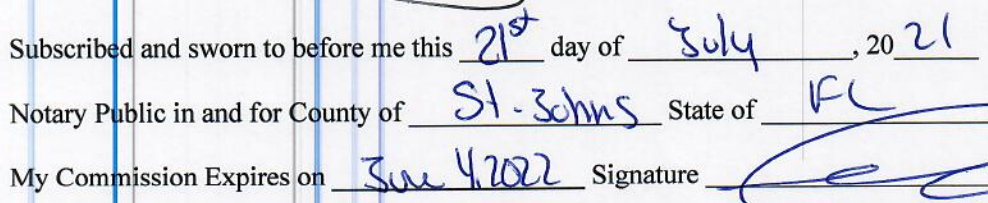 Subscribed and sworn to before me this 21st day of July, 20 21
Notary Public in and for County of St-Johns State of FL
My Commission Expires on June 4, 2022 Signature